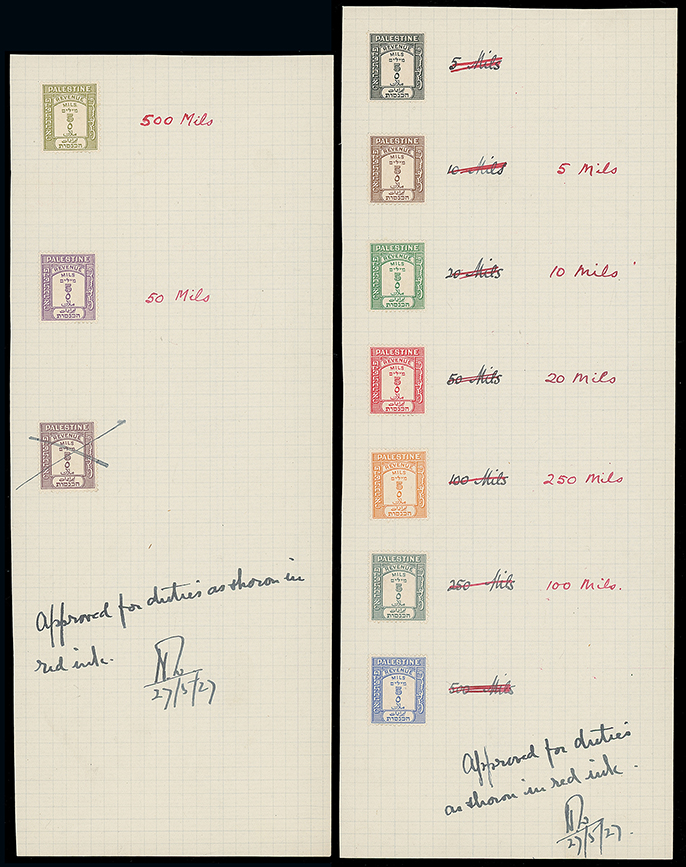 PALESTINE
REVENUE
MILS
מילים
5
٥
הכנסות
500 Mils
PALESTINE
REVENUE
MILS
מילים
5
٥
הכנסות
50 Mils
PALESTINE
REVENUE
MILS
מילים
5
٥
הכנסות
Approved for duties as shown in
red ink.
27/5/27
PALESTINE
REVENUE
MILS
מילים
5
٥
הכנסות
5 Mils
PALESTINE
REVENUE
MILS
מילים
5
٥
הכנסות
10 Mils 5 Mils
PALESTINE
REVENUE
MILS
מילים
5
٥
הכנסות
20 Mils 10 Mils
PALESTINE
REVENUE
MILS
מילים
5
٥
הכנסות
50 Mils 20 Mils
PALESTINE
REVENUE
MILS
מילים
5
٥
הכנסות
100 Mils 250 Mils
PALESTINE
REVENUE
MILS
מילים
5
٥
הכנסות
250 Mils 100 Mils.
PALESTINE
REVENUE
MILS
מילים
5
٥
הכנסות
500 Mils
Approved for duties
as shown in red ink.
27/5/27.